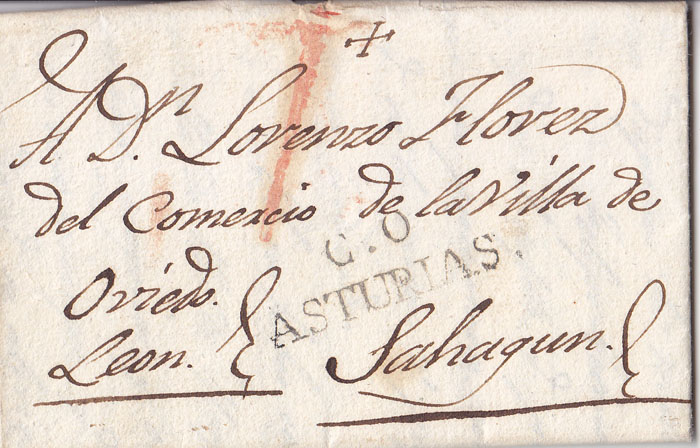 A Dⁿ. Lorenzo Florez
del Comercio de la Villa de
C.O
ASTURIAS.
Oviedo.
Leon. Sahagun.